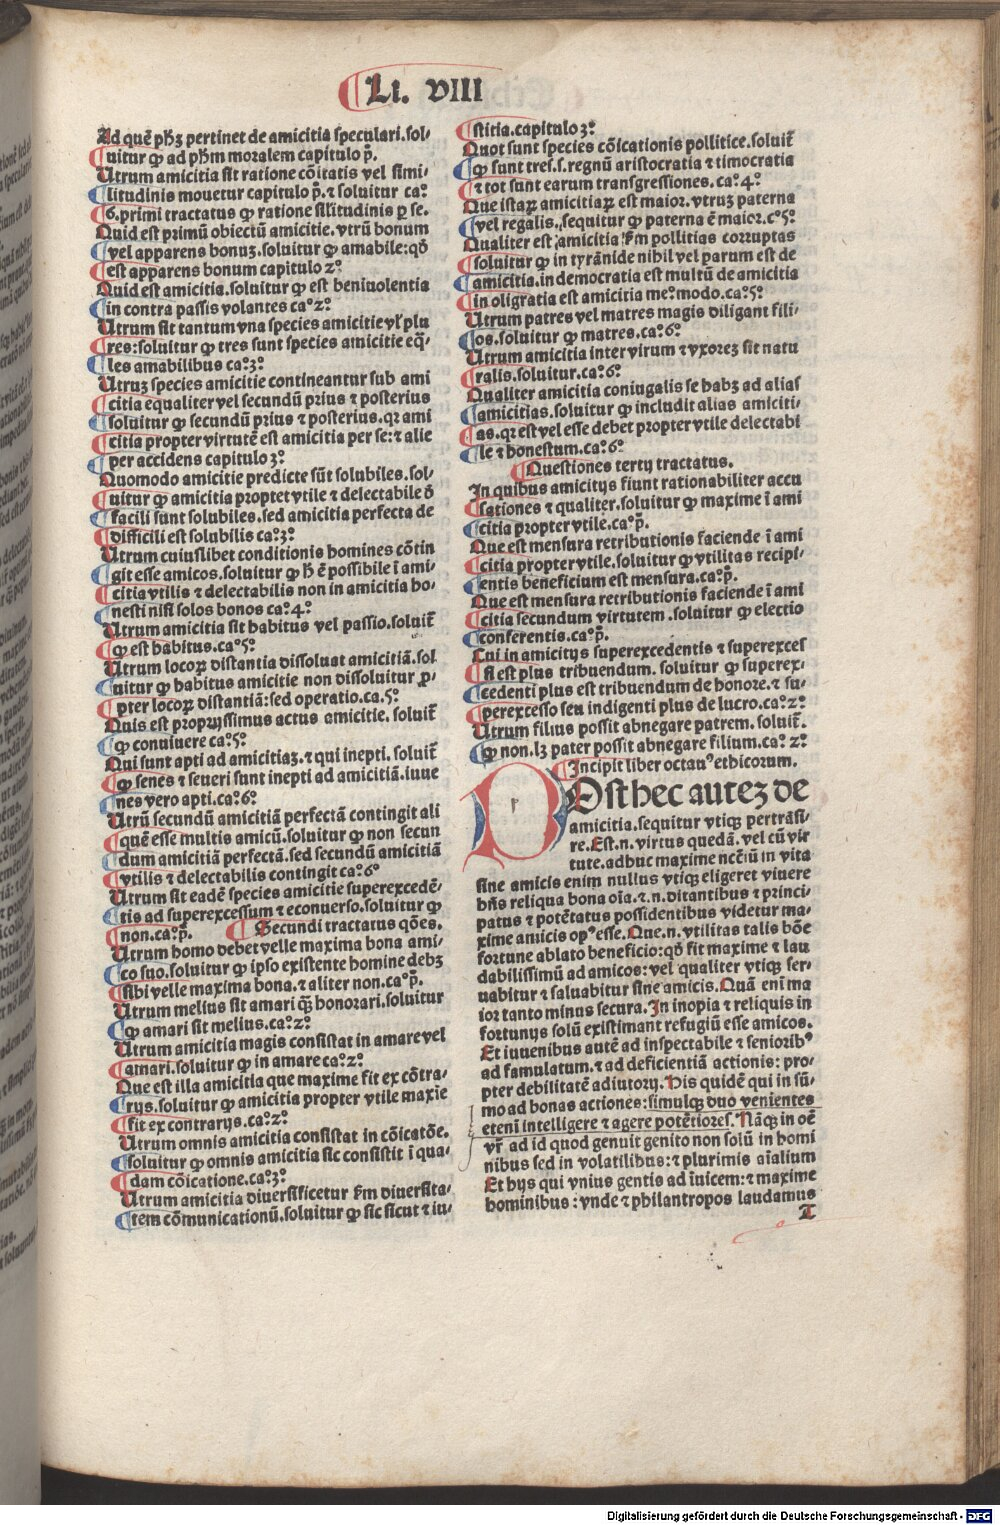 Li. VIII
Ad quē phꝫ pertinet de amicitia speculari.sol⸗
uitur ꝙ ad phm moralem capitulo p̄.
Utrum amicitia sit ratione cōitatis vel simi⸗
litudinis mouetur capitulo p̄.⁊ soluitur ca°
6.primi tractatus ꝙ ratione silitudinis ꝑ se.
Quid est primū obiectū amicitie.vtrū bonum
vel apparens bonuꝫ.soluitur ꝙ amabile:qđ
est apparens bonum capitulo 2°
Quid est amicitia.soluitur ꝙ est beniuolentia
in contra passis volantes ca°2°
Utrum sit tantum vna species amicitie vl' plu
res:soluitur ꝙ tres sunt species amicitie eq̄⸗
les amabilibus ca°3°
Utruꝫ species amicitie contineantur sub ami
citia equaliter vel secundū prius ⁊ posterius
soluitur ꝙ secundū prius ⁊ posterius.qꝛ ami
citia propter virtutē est amicitia per se:⁊ alie
per accidens capitulo 3°
Quomodo amicitie predicte sūt solubiles.sol⸗
uitur ꝙ amicitia proptet vtile ⁊ delectabile đ
facili sunt solubiles.sed amicitia perfecta de
difficili est solubilis ca°3°
Utrum cuiuslibet conditionis homines cōtin
git esse amicos.soluitur ꝙ h̄ ē possibile ī ami⸗
citia vtilis ⁊ delectabilis non in amicitia ho⸗
nesti nisi solos bonos ca°4°
Utrum amicitia sit habitus vel passio.soluit̄
ꝙ est habitus.ca°5°
Utrum locoꝝ distantia dissoluat amicitiā.sol
uitur ꝙ habitus amicitie non dissoluitur ꝓ⸗
pter locoꝝ distantiā:sed operatio.ca.5°
Quis est proprijssimus actus amicitie. soluit̄
ꝙ conuiuere ca°5°
Qui sunt apti ad amicitiaꝫ.⁊ qui inepti. soluit̄
ꝙ senes ⁊ seueri sunt inepti ad amicitiā.iuue
nes vero apti.ca°6°
Utrū secundū amicitiā perfectā contingit ali
quē esse multis amicū.soluitur ꝙ non secun
dum amicitiā perfectā.sed secundū amicitiā
vtilis ⁊ delectabilis contingit ca°6°
Utrum sit eadē species amicitie superexcedē⸗
tis ad superexcessum ⁊ econuerso.soluitur ꝙ
non.ca°p̄. Secundi tractatus qōes.
Utrum homo debet velle maxima bona ami⸗
co suo.soluitur ꝙ ipso existente homine debꝫ
sibi velle maxima bona.⁊ aliter non.ca°p̄.
Utrum melius sit amari qꝫ honorari.soluitur
ꝙ amari sit melius.ca°2°
Utrum amicitia magis consistat in amare vel
amari.soluitur ꝙ in amare ca°2°
Que est illa amicitia que maxime fit ex cōtra⸗
rijs.soluitur ꝙ amicitia propter vtile maxie
fit ex contrarijs.ca°2°
Utrum omnis amicitia consistat in cōicatōe.
soluitur ꝙ omnis amicitia sic consistit ī qua⸗
dam cōicatione.ca°3°
Utrum amicitia diuersificetur fm diuersita⸗
tem cōmunicationū.soluitur ꝙ sic sicut ⁊ iu⸗
stitia.capitulo 3°
Quot sunt species cōicationis pollitice.soluit̄
ꝙ sunt tres.s.regnū aristocratia ⁊ timocratia
⁊ tot sunt earum transgressiones.ca°4°
Que istaꝝ amicitiaꝝ est maior.vtruꝫ paterna
vel regalis.sequitur ꝙ paterna ē maior.c°5°
Qualiter est amicitia fm pollitias corruptas
soluitur ꝙ in tyrānide nihil vel parum est de
amicitia.in democratia est multū de amicitia
in oligratia est amicitia me°modo.ca°5°
Utrum patres vel matres magis diligant fili⸗
os.soluitur ꝙ matres.ca°6°
Utrum amicitia inter virum ⁊ vxoreꝫ sit natu
ralis.soluitur.ca°6°
Qualiter amicitia coniugalis se habꝫ ad alias
amicitias.soluitur ꝙ includit alias amiciti⸗
as.qꝛ est vel esse debet propter vtile delectabi
le ⁊ honestum.ca°6°
Questiones tertij tractatus.
In quibus amicitijs fiunt rationabiliter accu
sationes ⁊ qualiter.soluitur ꝙ maxime ī ami
citia propter vtile.ca°p̄.
Que est mensura retributionis faciende ī ami
citia propter vtile.soluitur ꝙ vtilitas recipi⸗
entis beneficium est mensura.ca°p̄.
Que est mensura retributionis faciende ī ami
citia secundum virtutem.soluitur ꝙ electio
conferentis.ca°p̄.
Cui in amicitijs superexcedentis ⁊ superexces
si est plus tribuendum. soluitur ꝙ superex⸗
cedenti plus est tribuendum de honore.⁊ su⸗
perexcesso seu indigenti plus de lucro.ca°2°
Utrum filius possit abnegare patrem. soluit̄.
ꝙ non.lꝫ pater possit abnegare filium.ca° 2°
Incipit liber octau⁹ ethicorum.
POst hec auteꝫ de
amicitia.sequitur vtiqꝫ pertrāsi⸗
re.Est.n.virtus quedā.vel cū vir
tute.adhuc maxime nccīū in vita
sine amicis enim nullus vtiqꝫ eligeret viuere
hn̄s reliqua bona oīa.⁊.n.ditantibus ⁊ princi⸗
patus ⁊ potētatus possidentibus videtur ma⸗
xime amicis op⁹ esse.Que.n.vtilitas talis bōe
fortune ablato beneficio:qđ fit maxime ⁊ lau
dabilissimū ad amicos:vel qualiter vtiqꝫ ser⸗
uabitur ⁊ saluabitur sine amicis.Quā enī ma
ior tanto minus secura.In inopia ⁊ reliquis in
fortunijs solū existimant refugiū esse amicos.
Et iuuenibus autē ad inspectabile ⁊ seniorib⁹
ad famulatum.⁊ ad deficientiā actionis: pro⸗
pter debilitatē adiutorij.His quidē qui in sū⸗
mo ad bonas actiones:simulqꝫ duo venientes
etenī intelligere ⁊ agere potētiores.Nāqꝫ in oē
vr̄ ad id quod genuit genito non solū in homi
nibus sed in volatilibus:⁊ plurimis aīalium
Et hijs qui vnius gentis ad īuicem:⁊ maxime
hominibus:vnde ⁊ philantropos laudamus
T
Digitalisierung gefördert durch die Deutsche Forschungsgemeinschaft - DFG